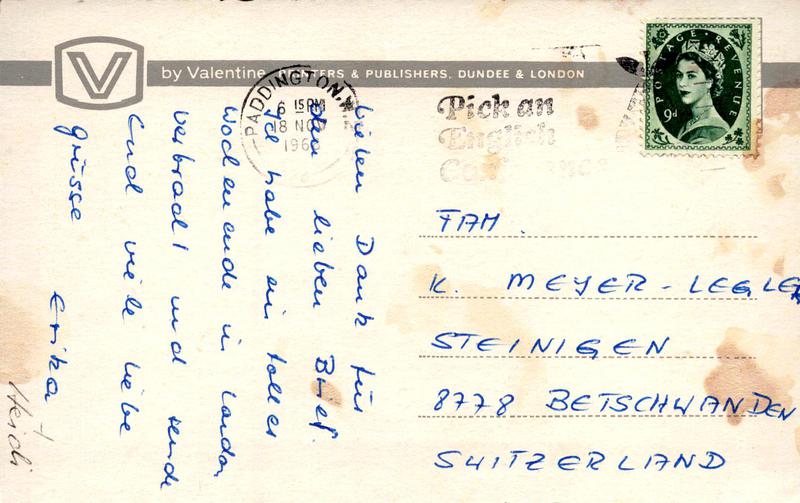 by Valentine PRINTERS & PUBLISHERS, DUNDEE & LONDON
PADDINGTON
6 15 PM
18 NOV
196
Pick an
English
POSTAGE REVENUE
9d
Vielen Dank für
den lieben Brief.
Ich habe ein tolles
Wochenende in London
verbracht und sende
Euch viele liebe
Grüsse Erika
+ Heidi
FAM.
K. MEYER-LEGLER
STEINIGEN
8778 BETSCHWANDEN
SWITZERLAND